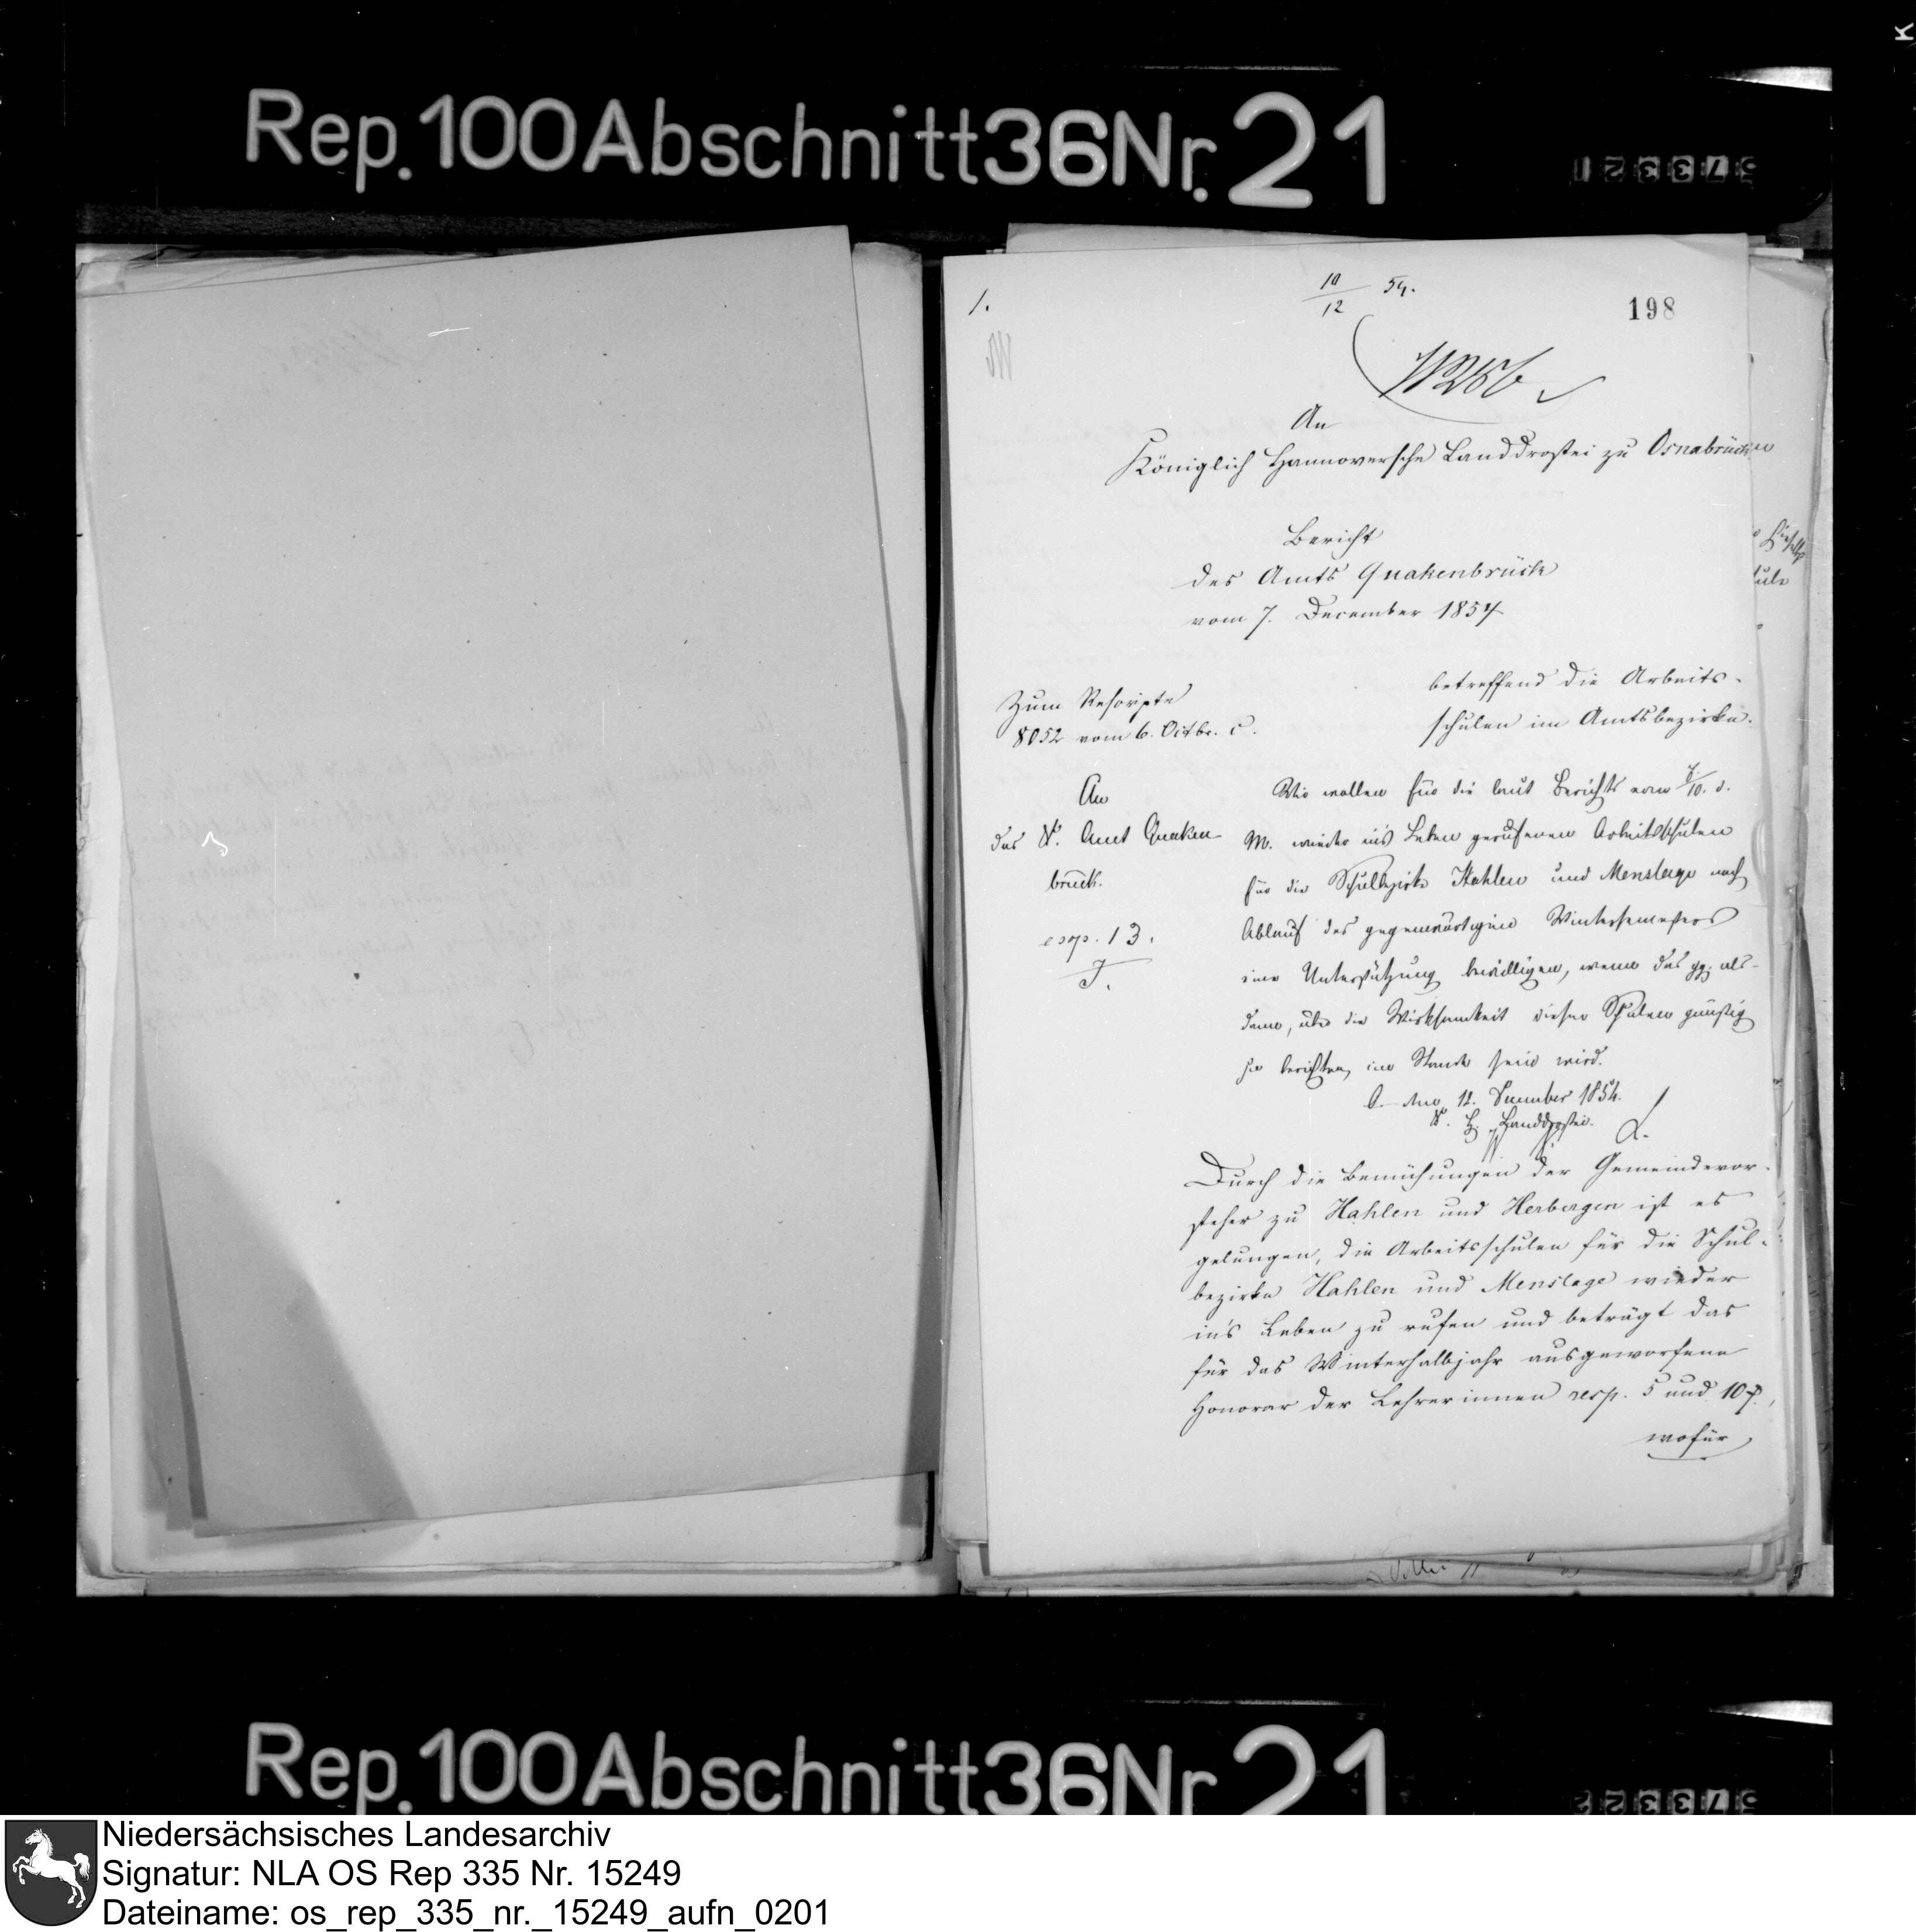 Rep. 100 Abschnitt 36 Nr. 21
1.
10/12 54.
198
An
Königlich Hannoversche Landdrostei zu Osnabrücken
Bericht
des Amts Quakenbrück
vom 7. December 1854
betreffend die Arbeits-
schulen im Amtsbezirke.
Zum Rescripte
8052 vom 6. Octbr. c.
An
das K. Amt Quaken
brück.
exp. 13.
Wir wollen für die laut Berichts vom 7./10. d.
M. wieder ins Leben gerufenen Arbeitsschulen
für die Schulbezirke Hahlen und Menslage nach
Ablauf des gegenwärtigen Wintersemesters
eine Unterstützung bewilligen, wenn das als-
dann, über die Wirksamkeit dieser Schulen günstig
zu berichten, im Stande sein wird.
O. den 12. December 1854.
K. H. Landdrostei.
Durch die Bemühungen der Gemeindevor-
steher zu Hahlen und Herbergen ist es
gelungen, die Arbeitsschulen für die Schul-
bezirke Hahlen und Menslage wieder
in's Leben zu rufen und beträgt das
für das Winterhalbjahr ausgeworfene
Honorar der Lehrerinnen resp. 5 und 10 ₰,
wofür
Rep. 100 Abschnitt 36 Nr 21
Niedersächsisches Landesarchiv
Signatur: NLA OS Rep 335 Nr. 15249
Dateiname: os_rep_335_nr._15249_aufn_0201